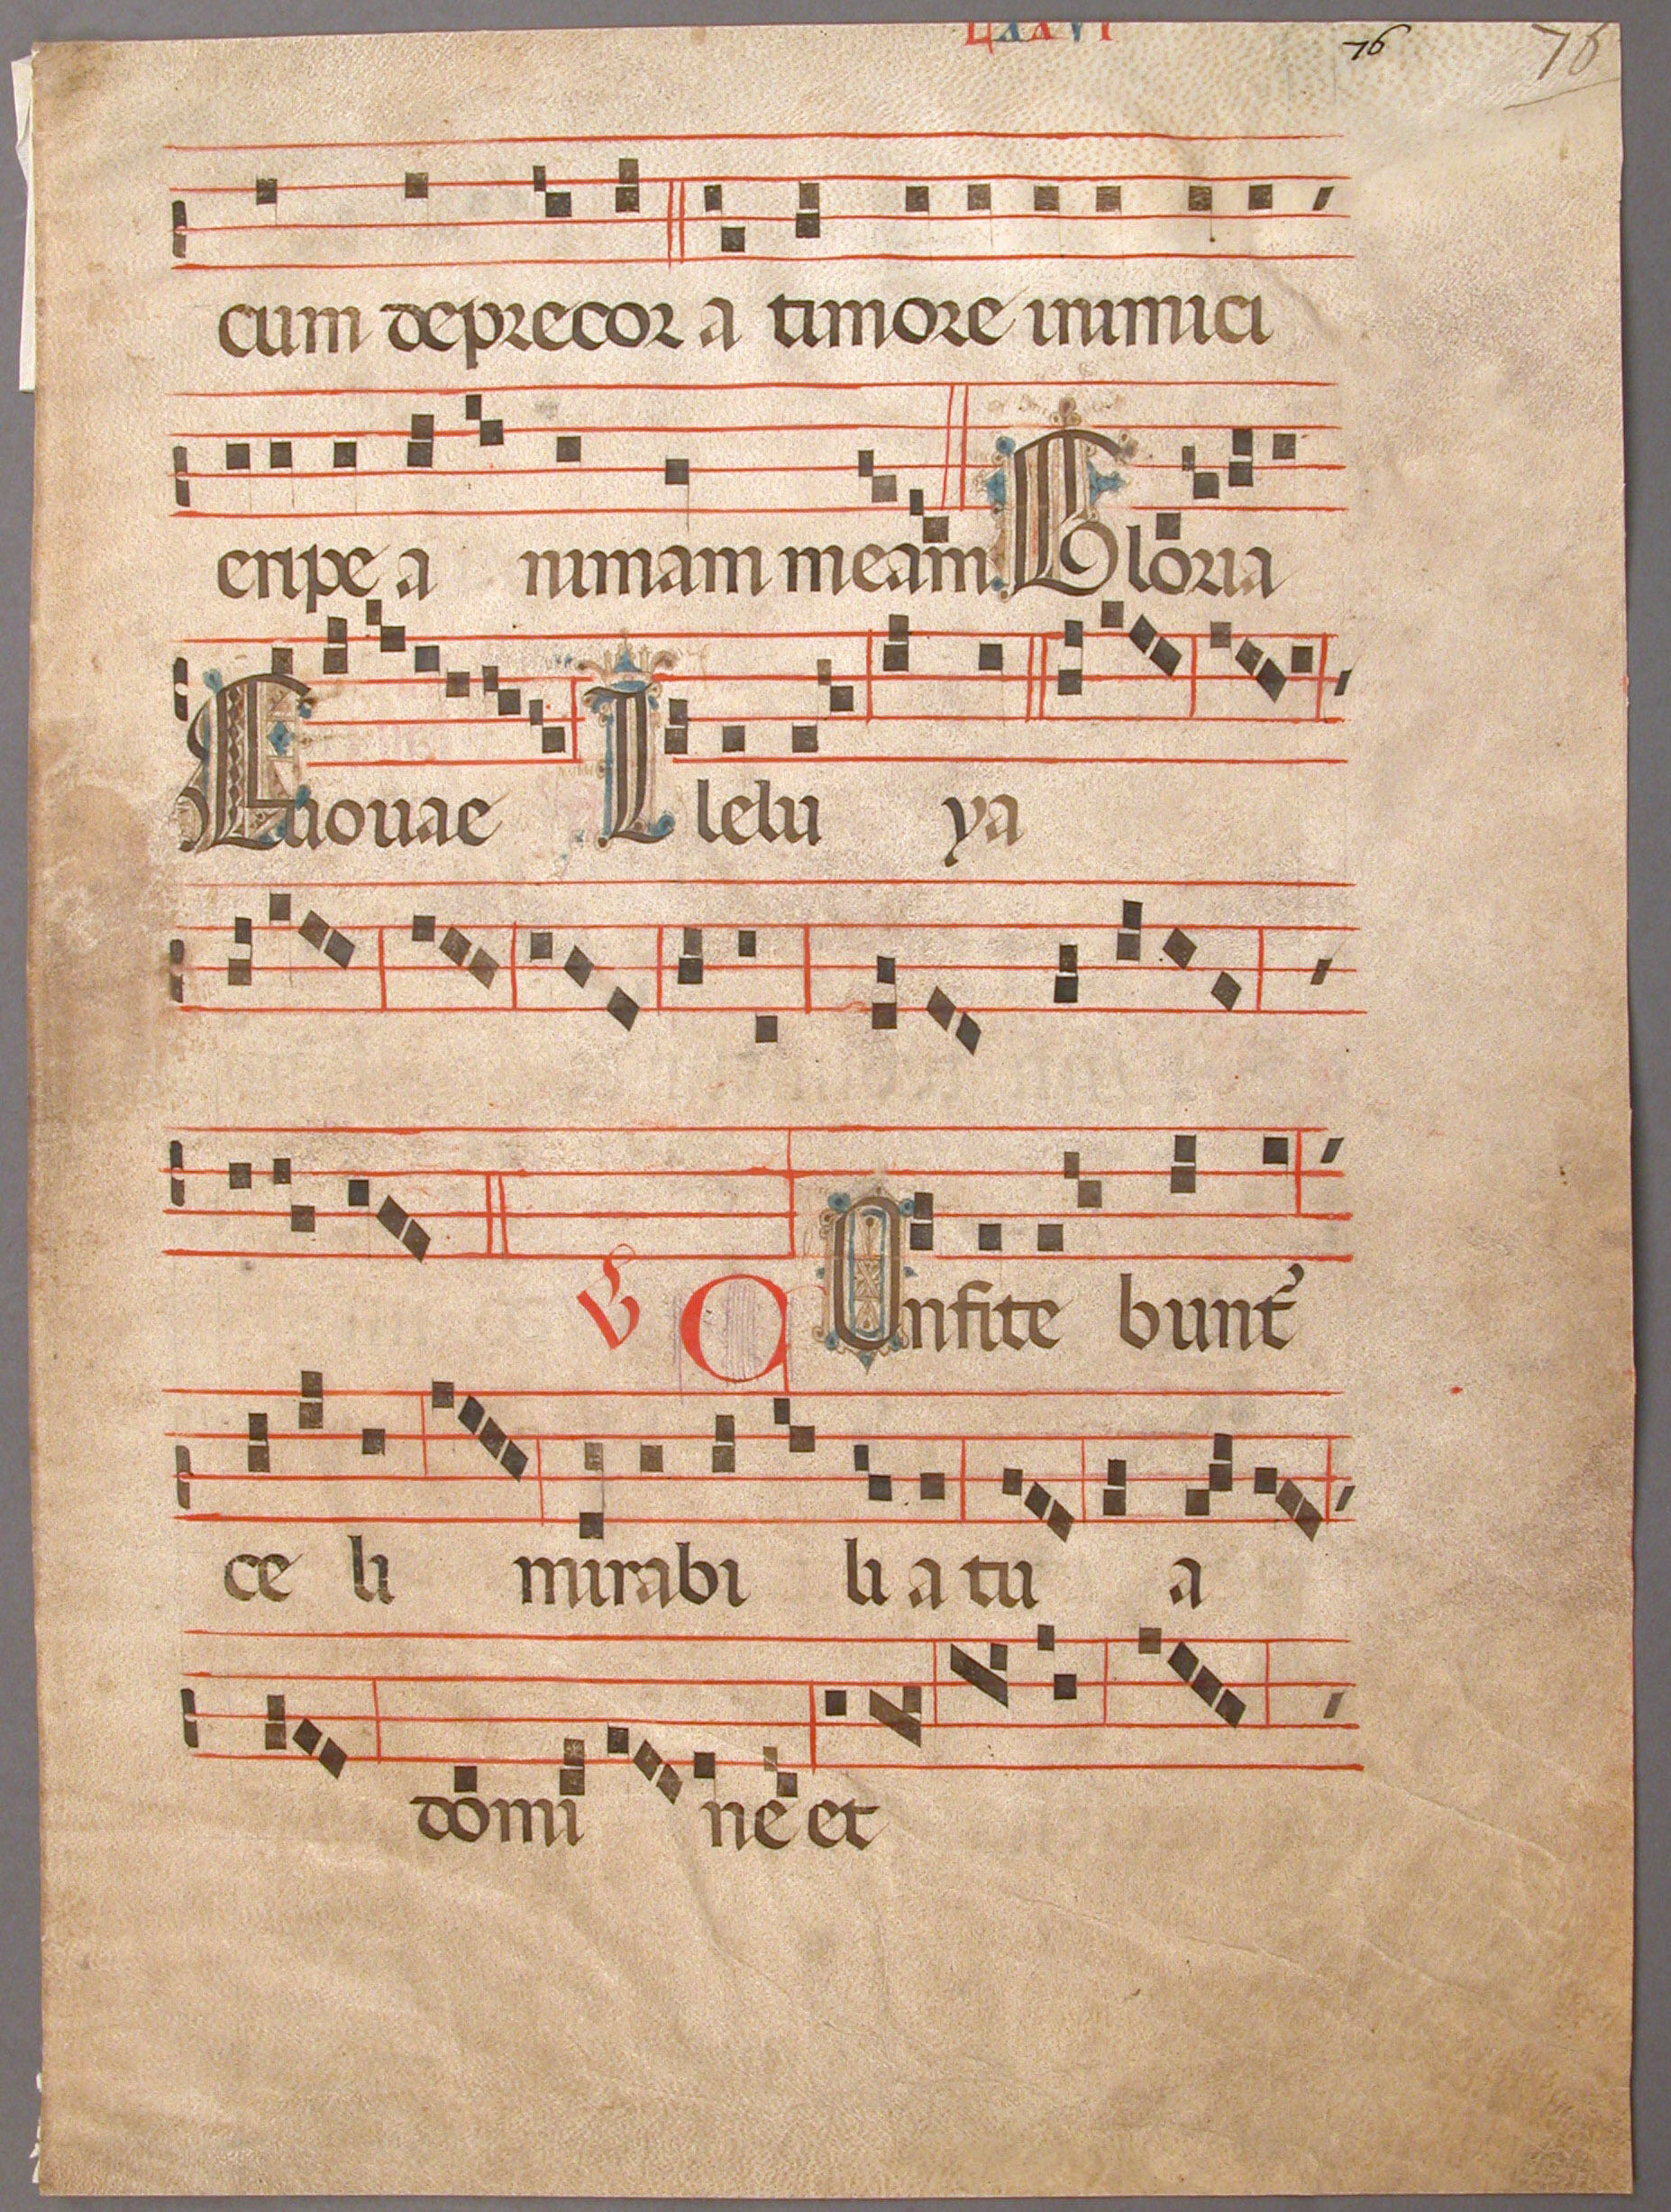 LXXVI 76 76
cum deprecor a timore inimici
eripe a nimam meam Gloria
Euouae A lelu ya
℣ C Onfite bunt᷒
ce li mirabi li a tu a
domi ne et